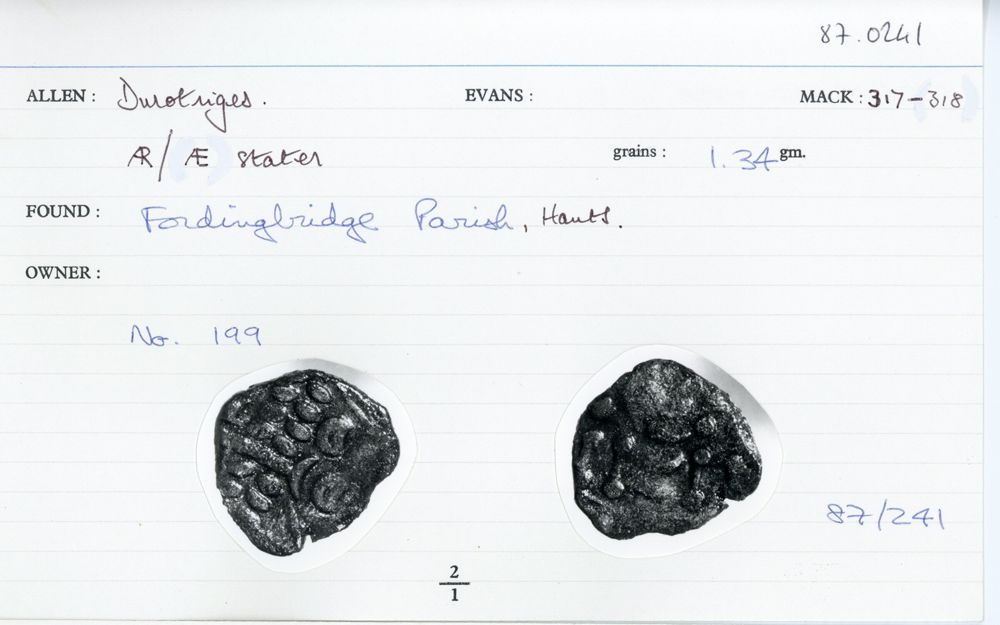 87.0241
ALLEN : Durotriges. EVANS : MACK : 317-318
ÆR/Æ stater grains : 1.34 gm.
FOUND : Fordingbridge Parish, Hants.
OWNER :
No. 199
87/241
2
1